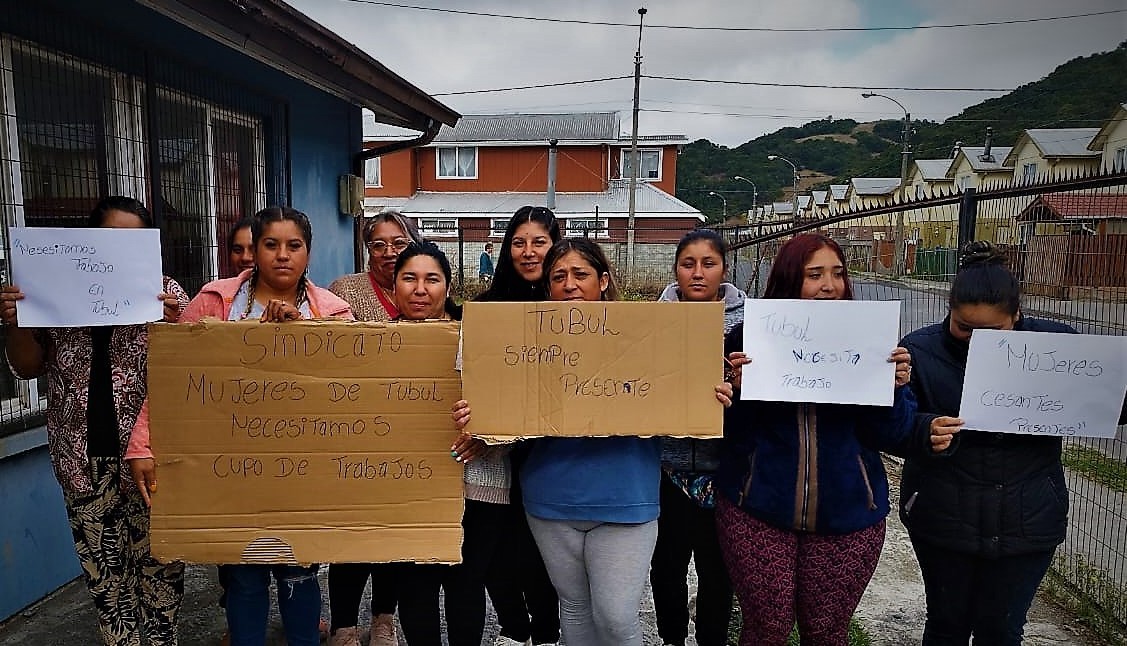 "Nesesitamos
Trabajo
En
Tubul"
Sindicato
Mujeres De Tubul
Necesitamos
Cupo De Trabajos
TUBUL
Siempre
Presente
Tubul
Necesita
Trabajo
"Mujeres
Cesantes
Presentes"